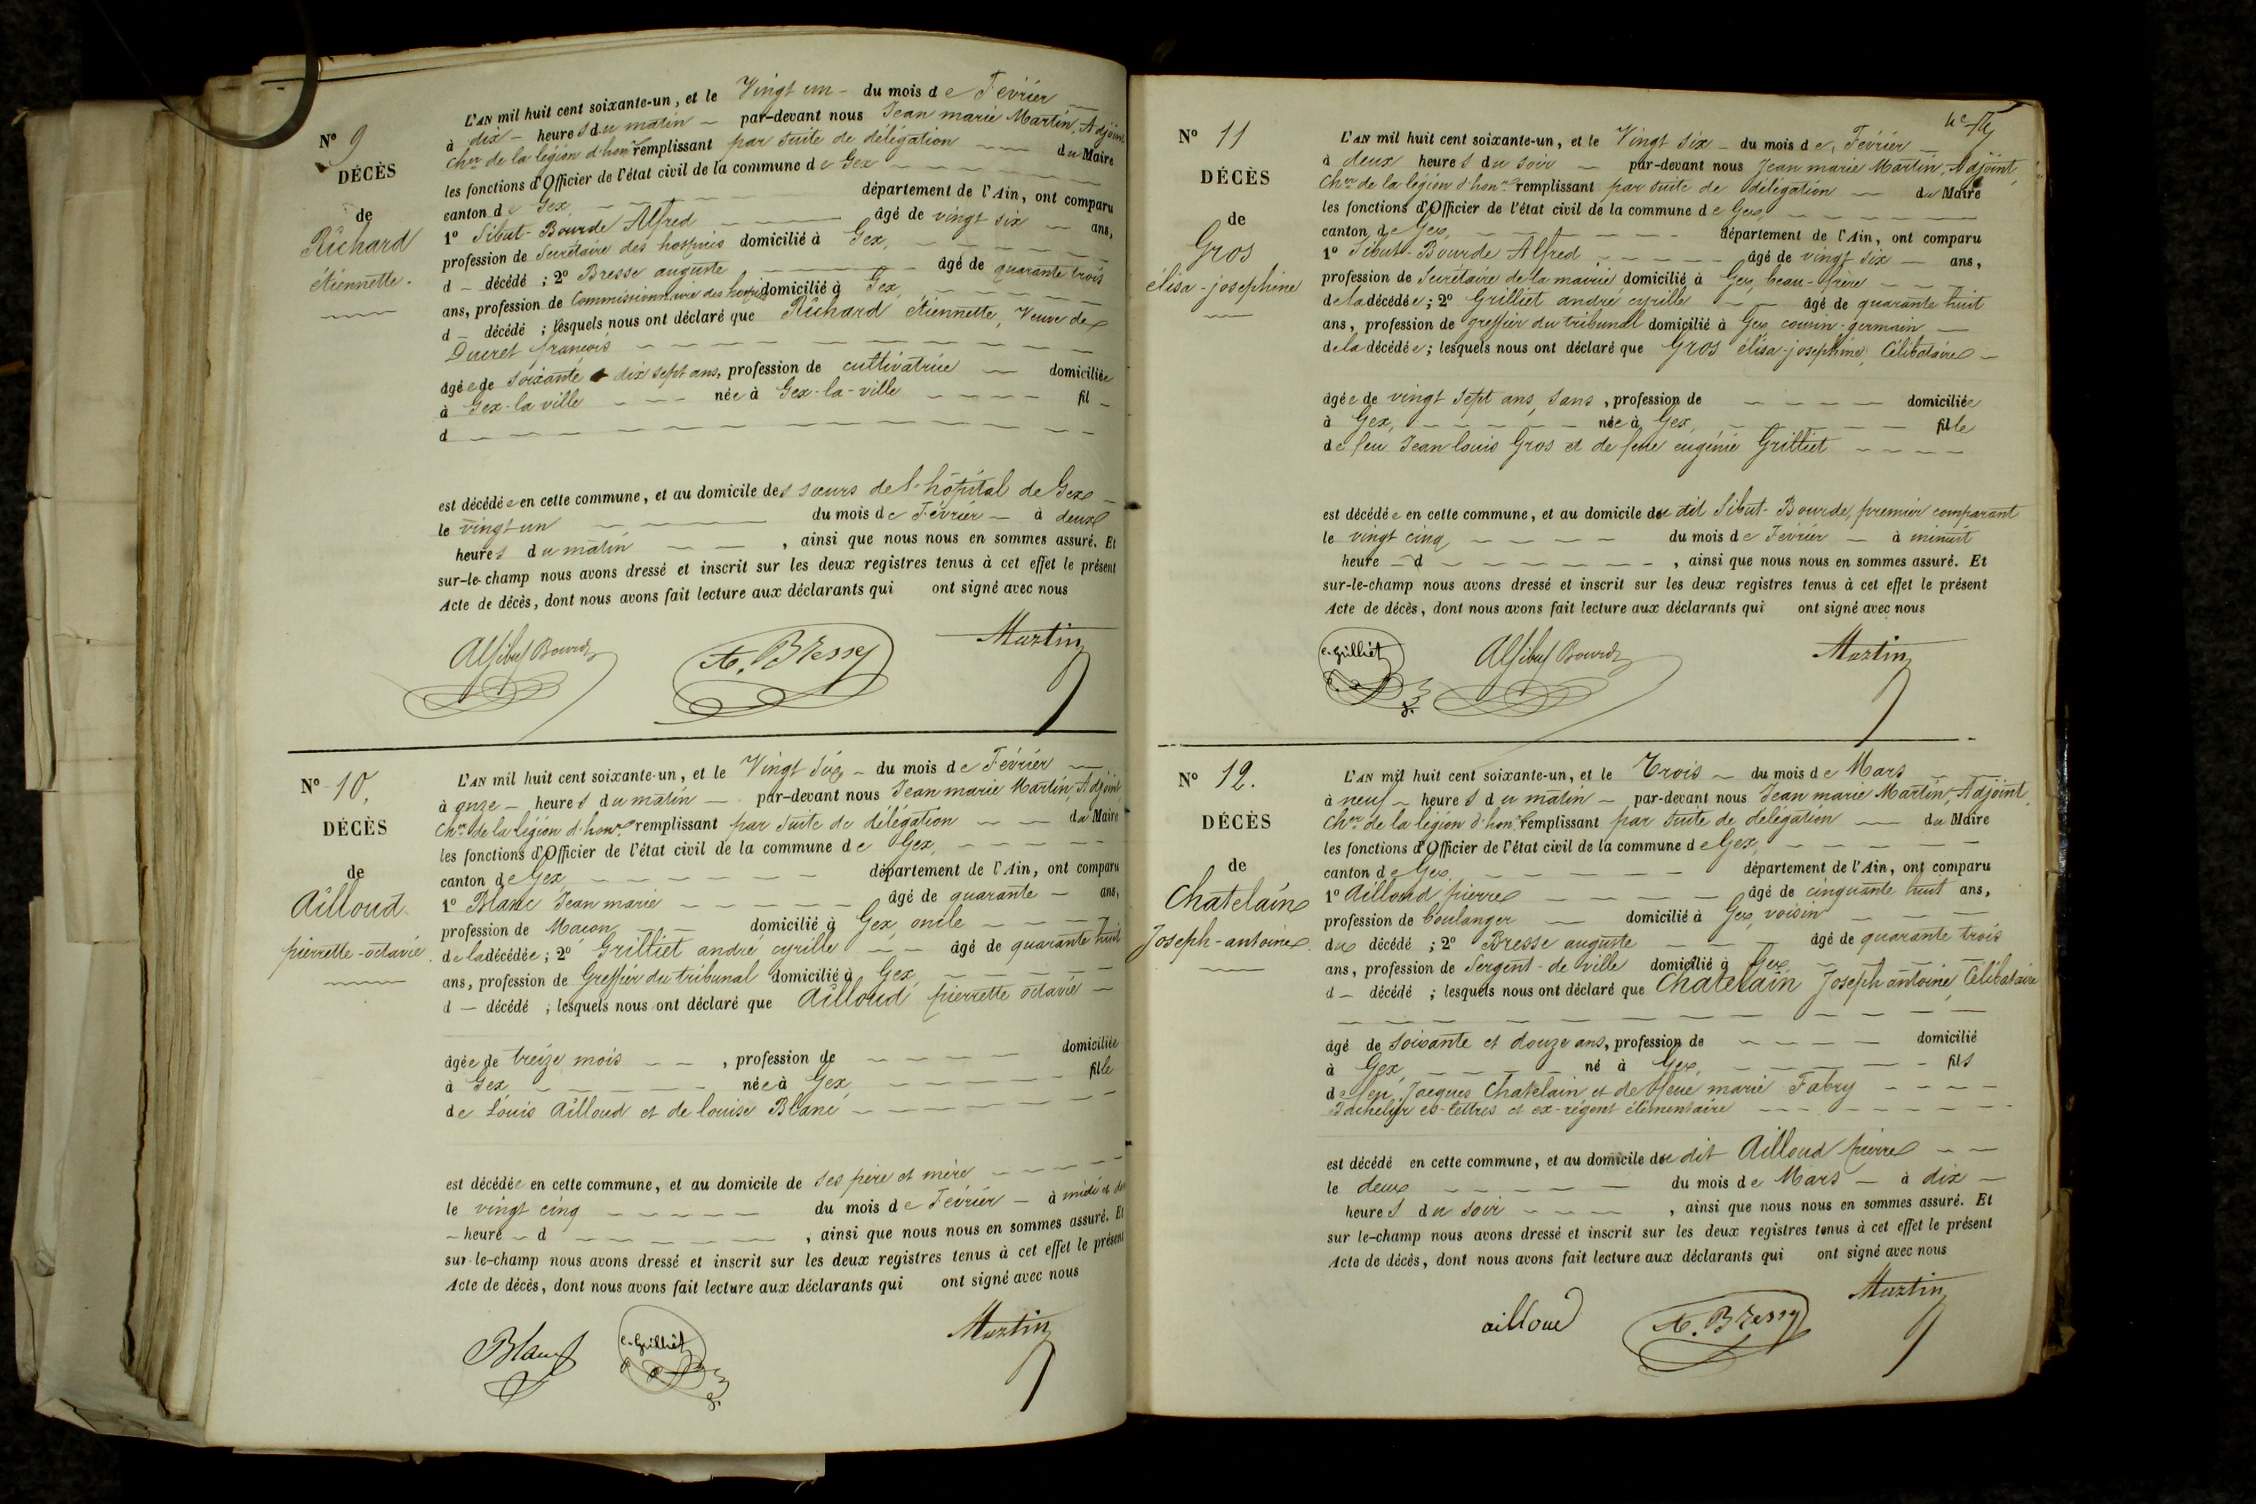 N° 9
DÉCÈS
de
Richard
étiennette.
L'AN mil huit cent soixante-un, et le Vingt un - du mois de Février
à dix - heures du matin - par-devant nous Jean marie Martin, Adjoint
Cher de la légion d'honr remplissant par suite de délégation du Maire
les fonctions d'Officier de l'état civil de la commune de Gex
canton de Gex département de l'Ain, ont comparu
1° Sibut-Bourde Alfred âgé de vingt six ans,
profession de Secrétaire des hospices domicilié à Gex,
d décédé ; 2° Bresse auguste âgé de quarante trois
ans, profession de Commissionnaire des hospices domicilié à Gex,
d décédé ; lesquels nous ont déclaré que Richard étiennette, Veuve de
Ducret françois
âgée de soixante dix sept ans, profession de cultivatrice domiciliée
à Gex-la ville née à Gex-la-ville fil
d
est décédée en cette commune, et au domicile des sœurs de l'hôpital de Gex
le vingt un du mois de Février - à deux
heures du matin , ainsi que nous nous en sommes assuré. Et
sur-le-champ nous avons dressé et inscrit sur les deux registres tenus à cet effet le présent
Acte de décès, dont nous avons fait lecture aux déclarants qui ont signé avec nous
Alf Sibut Bourde A. Bresse Martin
N° 10.
DÉCÈS
de
Ailloud
pierrette-octavie.
L'AN mil huit cent soixante-un, et le Vingt Six - du mois de Février
à onze - heures du matin - par-devant nous Jean marie Martin, Adjoint
Chr de la légion d'honr remplissant par suite de délégation du Maire
les fonctions d'Officier de l'état civil de la commune de Gex,
canton de Gex département de l'Ain, ont comparu
1° Blanc Jean marie âgé de quarante - ans,
profession de Maçon domicilié à Gex, oncle
de la décédée ; 2° Grilliet andré cyrille âgé de quarante huit
ans, profession de Greffier du tribunal domicilié à Gex,
d décédé ; lesquels nous ont déclaré que Ailloud pierrette octavie
âgée de treize mois , profession de domiciliée
à Gex née à Gex fille
de Louis Ailloud et de louise Blanc
est décédée en cette commune, et au domicile de ses père et mère
le vingt cinq du mois de Février - à midi et
heure d , ainsi que nous nous en sommes assuré. Et
sur-le-champ nous avons dressé et inscrit sur les deux registres tenus à cet effet le présent
Acte de décès, dont nous avons fait lecture aux déclarants qui ont signé avec nous
Blanc c. Grilliet Martin
N° 11
DÉCÈS
de
Gros
élisa-josephine
L'AN mil huit cent soixante-un, et le Vingt Six - du mois de Février
à deux heures du soir par-devant nous Jean marie Martin, Adjoint,
Cher de la légion d'honr remplissant par suite de délégation du Maire
les fonctions d'Officier de l'état civil de la commune de Gex,
canton de Gex, département de l'Ain, ont comparu
1° Sibut-Bourde Alfred âgé de vingt six ans,
profession de Secrétaire de la mairie domicilié à Gex, beau-frère
de la décédée ; 2° Grilliet andré cyrille âgé de quarante huit
ans, profession de greffier du tribunal domicilié à Gex cousin-germain
de la décédée ; lesquels nous ont déclaré que Gros élisa-josephine, Célibataire
âgée de vingt sept ans, sans , profession de domiciliée
à Gex, née à Gex, fille
de feu Jean louis Gros et de feue eugénie Grilliet
est décédée en cette commune, et au domicile du dit Sibut-Bourde, premier comparant
le vingt cinq du mois de Février - à minuit
heure d , ainsi que nous nous en sommes assuré. Et
sur-le-champ nous avons dressé et inscrit sur les deux registres tenus à cet effet le présent
Acte de décès, dont nous avons fait lecture aux déclarants qui ont signé avec nous
c. Grilliet Alf Sibut Bourde Martin
N° 12.
DÉCÈS
de
Chatelain
Joseph-antoine
L'AN mil huit cent soixante-un, et le Trois - du mois de Mars
à neuf - heures du matin - par-devant nous Jean marie Martin, Adjoint,
Chr de la légion d'honr remplissant par suite de délégation du Maire
les fonctions d'Officier de l'état civil de la commune de Gex,
canton de Gex, département de l'Ain, ont comparu
1° Ailloud pierre âgé de cinquante huit ans,
profession de boulanger domicilié à Gex, voisin
du décédé ; 2° Bresse auguste âgé de quarante trois
ans, profession de Sergent-de ville domicilié à Gex
d décédé ; lesquels nous ont déclaré que Chatelain Joseph antoine, Célibataire
âgé de soixante et douze ans, profession de domicilié
à Gex, né à Gex, fils
de feu Jacques Chatelain et de feue marie Fabry
Bachelier es-lettres et ex-régent élémentaire
est décédé en cette commune, et au domicile du dit Ailloud pierre
le deux du mois de Mars - à dix
heures du soir , ainsi que nous nous en sommes assuré. Et
sur le-champ nous avons dressé et inscrit sur les deux registres tenus à cet effet le présent
Acte de décès, dont nous avons fait lecture aux déclarants qui ont signé avec nous
ailloud A. Bresse Martin